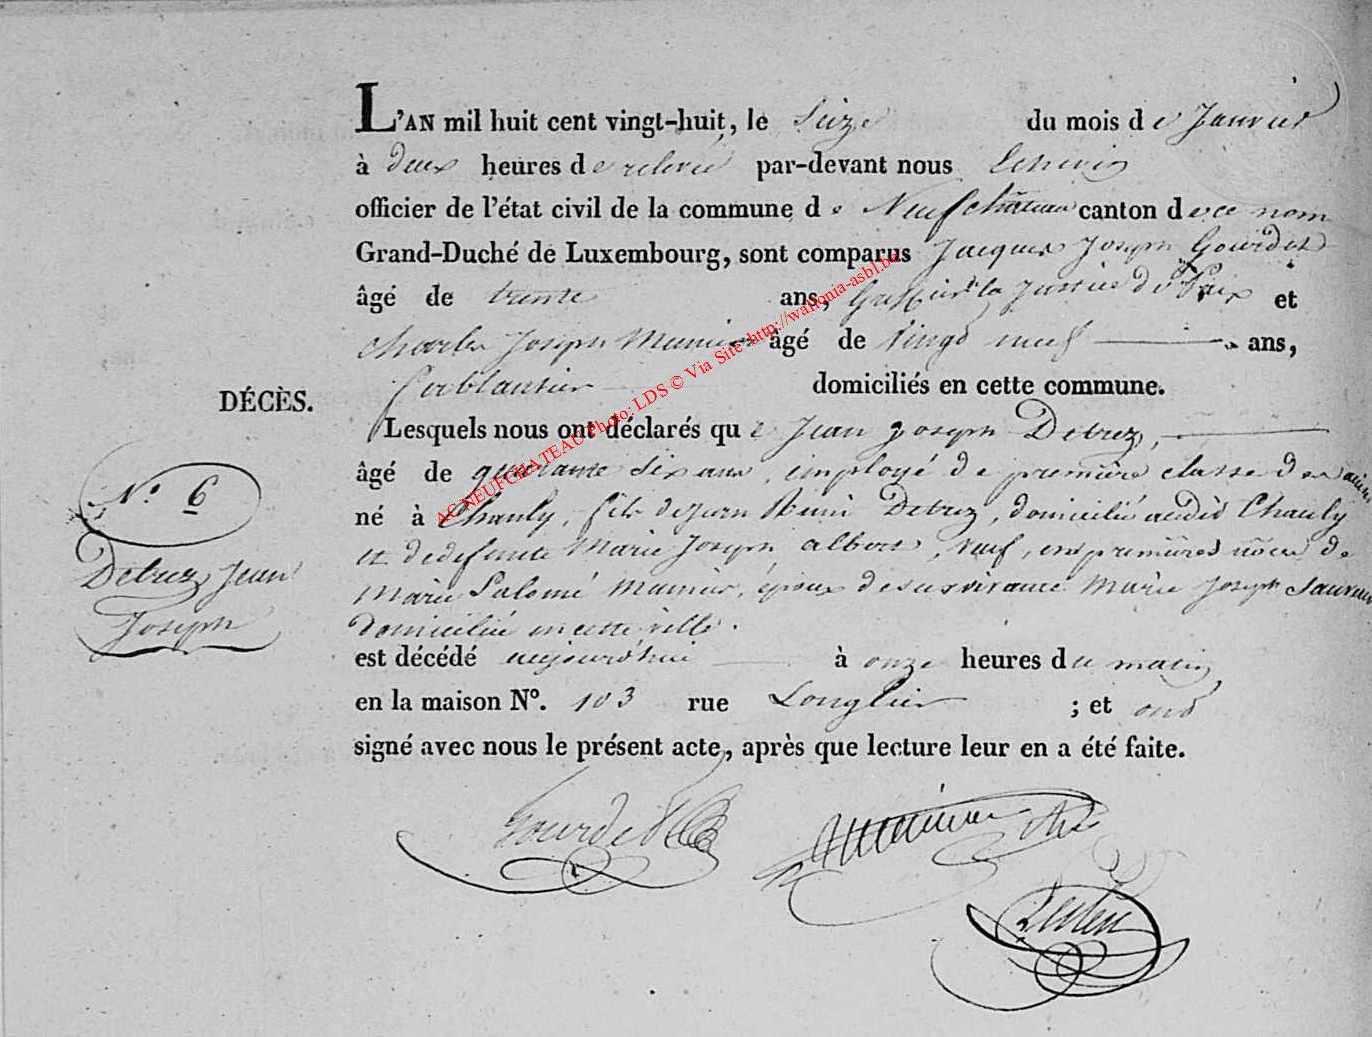 L'AN mil huit cent vingt-huit, le Seize du mois de Janvier
à deux heures de relevée par-devant nous Echevin
officier de l'état civil de la commune de Neufchâteau canton de ce nom
Grand-Duché de Luxembourg, sont comparus Jacques Joseph Gourdet
âgé de trente ans, Greffier de la Justice de Paix et
Charles Joseph Munier âgé de Vingt neuf ans,
ferblantier domiciliés en cette commune.
DÉCÈS.
Lesquels nous ont déclarés que Jean Joseph Detrez,
âgé de quarante six ans, employé de première classe des
né à Chanly, fils de Jean Remi Detrez, domicilié audit Chanly
et de defunte Marie Joseph Albert, veuf, en premières nôces de
Marie Salomé Munier, époux de survivante Marie Joseph
domiciliée en cette ville.
est décédé aujourd'hui à onze heures du matin
en la maison N°. 103 rue Longlier ; et ont
signé avec nous le présent acte, après que lecture leur en a été faite.
N° 6
Detrez Jean
Joseph
Gourdet
Munier
AC NEUFCHATEAU Photo: LDS © Via Site :http://wallonia-asbl.be